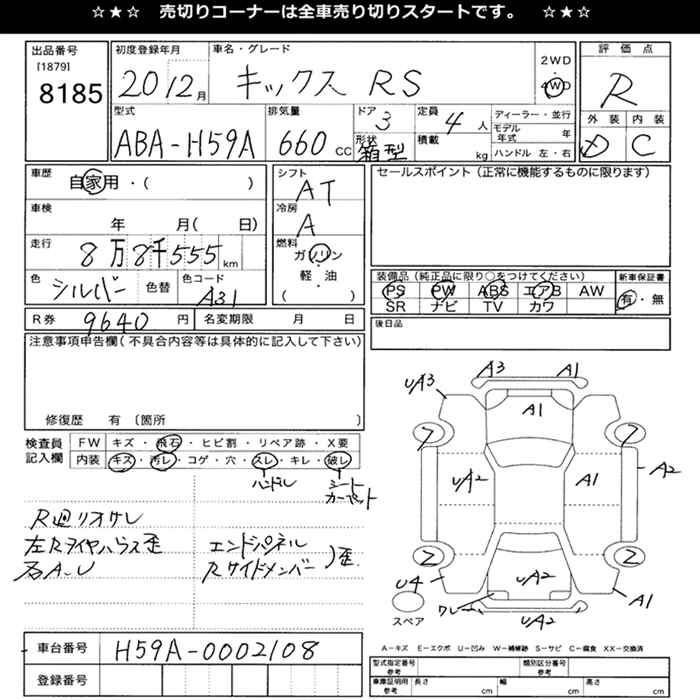 ☆★☆ 売切りコーナーは全車売り切りスタートです。 ☆★☆
出品番号
[1879]
8185
初度登録年月
20 12月
車名・グレード
キックス RS
2WD
4WD
評価点
R
型式
ABA-H59A
排気量
660 CC
ドア
3
形状
箱型
定員
4 人
積載
kg
ディーラー・並行
モデル年式 年
ハンドル 左・右
外装 内装
D C
車歴
自家用・( )
シフト
AT
セールスポイント(正常に機能するものに限ります)
車検
年 月( 日)
冷房
A
走行
8万8千555 km
燃料
ガソリン
軽・油
( )
色
シルバー
色替
色コード
A31
装備品(純正品に限り○をつけてください)
PS PW ABS エアB AW
SR ナビ TV カワ
新車保証書
有・無
R券 9640 円
名変期限 月 日
後日品
注意事項申告欄(不具合内容等は具体的に記入して下さい)
修復歴 有 〔箇所 〕
検査員記入欄
FW キズ・飛石・ヒビ割・リペア跡・X要
内装 キズ・汚レ・コゲ・穴・スレ・キレ・破レ
ハンドル
シート
カーペット
R廻リオサレ
左Rタイヤハウス歪
右A.U
エンドパネル
Rサイドメンバー
)歪.
UA3
A3
A1
A1
7
7
UA2
A1
A2
2
2
UA2
U4
A1
ワレ
UA2
スペア
A-キズ E-エクボ U-凹み W-補修跡 S-サビ C-腐食 XX-交換済
車台番号 H59A-0002108
登録番号
型式指定番号
参考
類別区分番号
参考
車庫証明用
参考
長さ cm
幅 cm
高さ cm